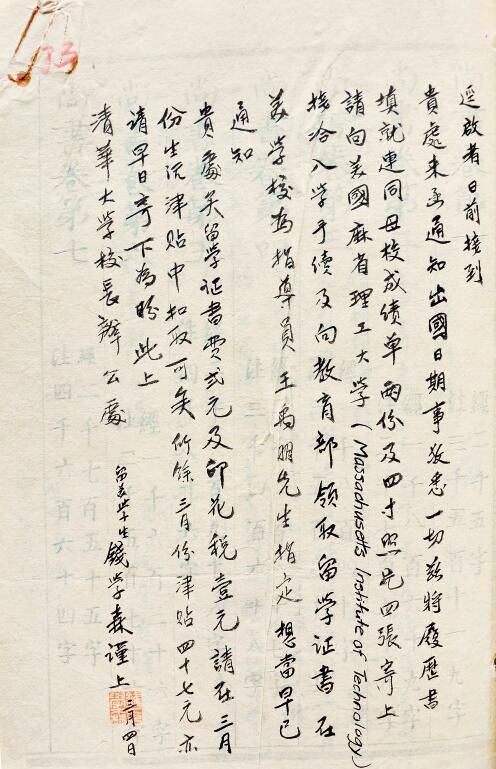 逕啟者日前接到
貴處來函通知出國日期事敬悉一切茲將履歷書
填就連同母校成績单兩份及四寸照片四張寄上
請向美國麻省理工大学(Massachusetts Institute of Technology)
接洽入学手續及向教育部領取留学证書在
美学校為指導員王助明先生指定想當早已
通知
貴處矣留学证書费弍元及印花税壹元請在三月
份生活津贴中扣取可矣所餘三月份津贴四十七元亦
请早日寄下為盼此上
清華大学校長辦公處
留美学生錢学森謹上
三月四日
33